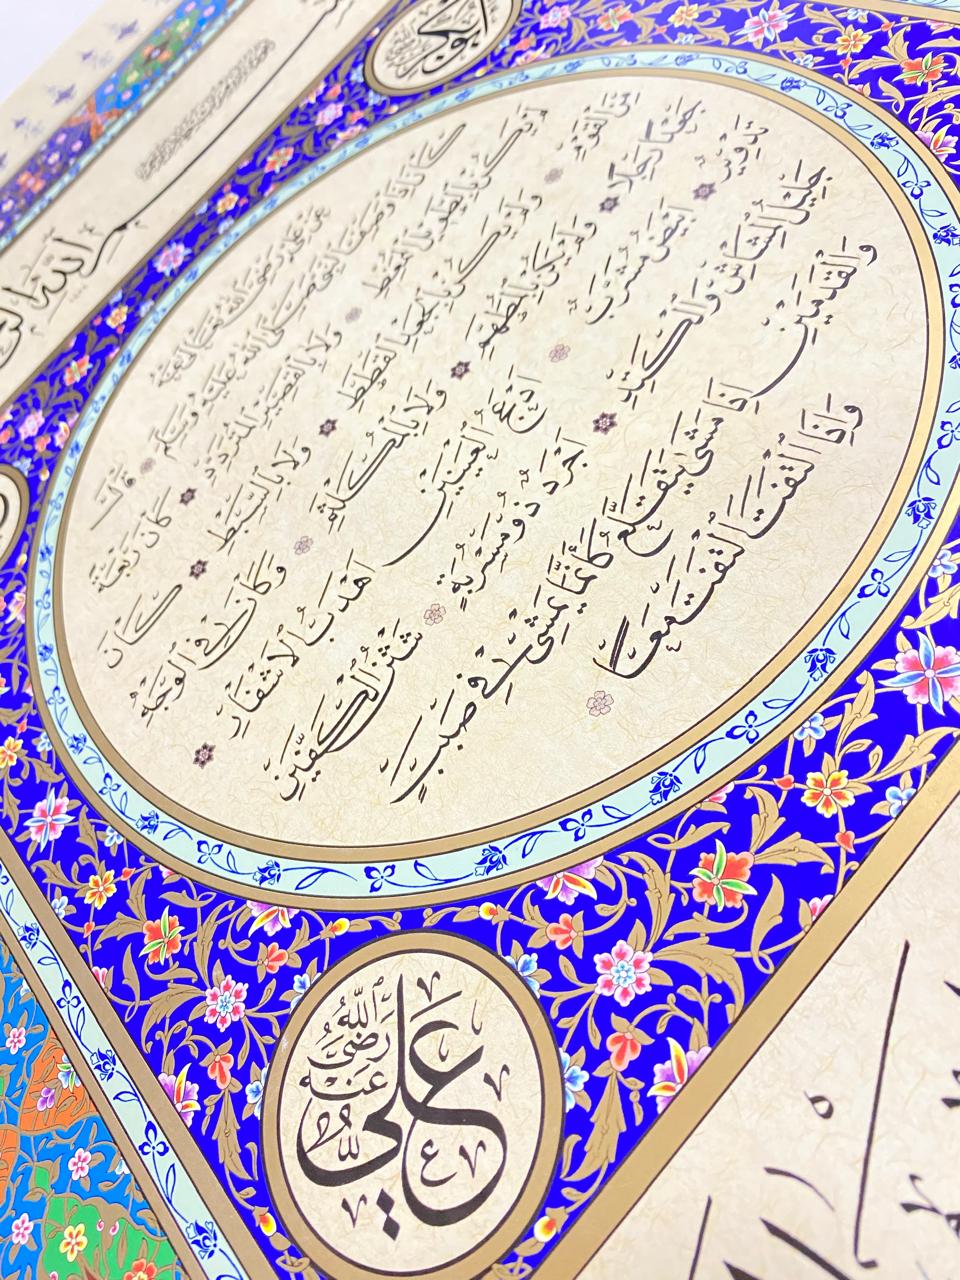 بسم الله
عن علي رضي الله تعالى عنه
كان اذا وصف النبي صلى الله عليه وسلم قال
لم يكن بالطويل الممغط ولا بالقصير المتردد كان ربعة
من القوم ولم يكن بالجعد القطط ولا بالسبط كان
جعدا رجلا ولم يكن بالمطهم ولا بالمكلثم وكان في الوجه
تدوير ابيض مشرب ادعج العينين اهدب الاشفار
جليل المشاش والكتد اجرد ذو مسربة شثن الكفين
والقدمين اذا مشى يتقلع كأنما يمشي في صبب
واذا التفت التفت معا
علي رضي الله عنه